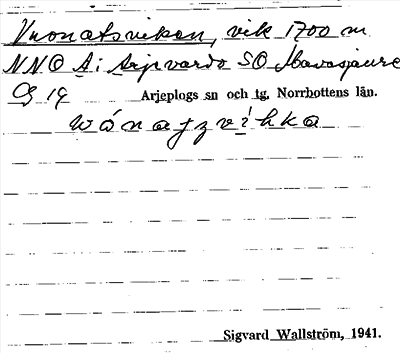 Vuonatsviken, vik 1700 m
NNO Δ i Arjvardo SO Mavasjaure
Cg 19 Arjeplogs sn och tg. Norrbottens län.
wánajzvìhka
Sigvard Wallström, 1941.